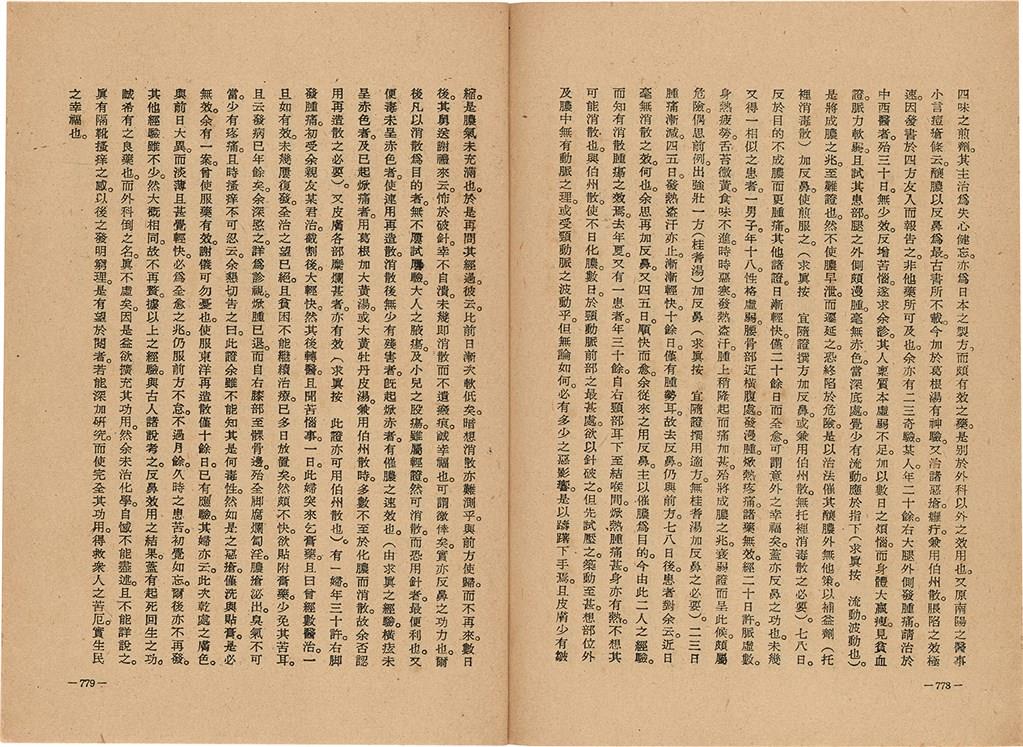 四味之煎劑。其主治爲失心健忘。亦爲日本之製方。而頗有效之藥。是別於外科以外之效用也。又原南陽之醫事
小言痘瘡條云。釀膿以反鼻爲最。古書所不載。今加於葛根湯有神驗。又治諸惡瘡癰疔。兼用伯州散。服陷之效極
速。因發書於四方友人而報告之。非他藥所可及也。余亦有二三奇驗。某人年二十餘。右大腿外側發腫痛。請治於
中西醫者。殆三十日。無少效。反增苦惱。遂求余診。其人稟質本虛弱不足。加以數日之煩惱。而身體大羸瘦。見貧血
證。脈力軟弱。且試其患部。腿之外側頗漫腫。毫無赤色。當深底處。覺少有流動應於指下（求眞按　流動波動也）。
是將成膿之兆。至難證也。然不使膿早泄而遷延之。恐終陷於危險。是以治法催其釀膿外無他策。以補益劑（托
裡消毒散）加反鼻。使煎服之（求眞按　宜隨證撰方加反鼻。或兼用伯州散。無托裡消毒散之必要）。七八日。
反於目的。不成膿而更腫痛。其他諸證日漸輕快。僅二十餘日而全愈。可謂意外之幸福矣。蓋亦反鼻之功也。未幾
又得一相似之患者。一男子年十八。性格虛弱。腰骨部近橫腹處發漫腫。焮熱疼痛。諸藥無效。經二十日許。脈虛數。
身熱疲勞。舌苔微黃。食味不進。時時惡寒發熱盜汗。腫上稍隆起而痛加甚。殆將成膿之兆。衰弱證而呈此候。頗屬
危險。偶思前例。出強壯一方（桂耆湯）加反鼻（求眞按　宜隨證撰用適方。無桂耆湯加反鼻之必要）。二三日
腫痛漸減。四五日發熱盜汗亦止。漸漸輕快。十餘日僅有腫勢耳。故去反鼻。仍與前方。七八日後。患者對余云。近日
毫無消散之效。何也。余思再加反鼻。又四五日。順快而愈。余從來之用反鼻。主以催膿爲目的。今由此二人之經驗。
而知有消散腫瘍之效焉。去年夏。又有一患者。年三十餘。自右頸部耳下至結喉間。焮熱腫痛甚。身亦有熱。不想其
可能消散也。與伯州散。使不日化膿。數日於頸動脈前部之最甚處。欲以針破之。但先試壓之。築動至甚。想部位外
及膿中無有動脈之理。或受頸動脈之波動乎。但無論如何。必有多少之惡影響。是以躊躇下手焉。且皮膚少有皺
—778—
縮。是膿氣未充滿也。於是再問其經過。彼云比前日漸次軟低矣。暗想消散亦難測乎。與前方使歸。而不再來。數日
後。其舅送謝禮來云。怖於破針。幸不自潰。未幾即消散。而不遺瘢痕。誠幸福也。可謂徼倖矣。實亦反鼻之功力也。爾
後凡以消散爲目的者。無不屢試屢驗。大人之腋瘍及小兒之股瘍。雖屬輕證。然可消散而恐用針者。最便利也。又
便毒未呈赤色者。使連用再造散。消散後無少有殘害者。旣起焮赤者。有催膿之速效也。（由求眞之經驗。橫痃未
呈赤色者。及已起焮痛者。用葛根加大黃湯。或大黃牡丹皮湯。兼用伯州散時。多數不至於化膿而消散。故余否認
用再造散之必要）。又皮膚各部糜爛甚者。亦有效（求眞按　此證亦可用伯州散也）。有一婦。年三十許。右脚
發腫痛。初受余親友某君治。截割後大輕快。然其後轉醫。且聞苦惱事。一日。此婦突來乞膏藥。且曰。曾經數醫治一
且如有效。未幾屢復發。全治之望已絕。且貧困不能繼續治療。已多日放置矣。然頗不快。欲貼附膏藥。少免其苦耳。
且云。發病已年餘矣。余深愍之。詳爲診視。焮腫已退。而自右膝部至髁骨邊。殆全脚腐爛匈淫。膿瘡泌出。臭氣不可
當。少有疼痛。且時搔痒不可忍云。余懇切告之曰。此證余雖不能知其是何毒性。然如是之惡瘡。僅洗與貼膏。是必
無效。余有一案。曾使服藥有效。謝儀可勿憂也。使服東洋再造散。僅十餘日。已有應驗。其婦亦云。此次乾處之膚色。
與前日大異。而淡薄。且甚覺輕快。必爲全愈之兆。仍服前方不怠。不過月餘。久時之患苦。初覺如忘。爾後亦不再發。
其他經驗雖不少。然大概相同。故不再贅。據以上之經驗。與古人諸說。考之反鼻效用之結果。蓋有起死回生之功。
誠希有之良藥也。而外科倒之名眞不虛矣。因是益欲擴充其功用。然余未治化學。自憾不能盡述。且不能詳說之。
眞有隔靴搔痒之感。以後之發明窮理。是有望於閱者。若能深加研究。而使完全其功用。得救衆人之苦厄。實生民
之幸福也。
—779—